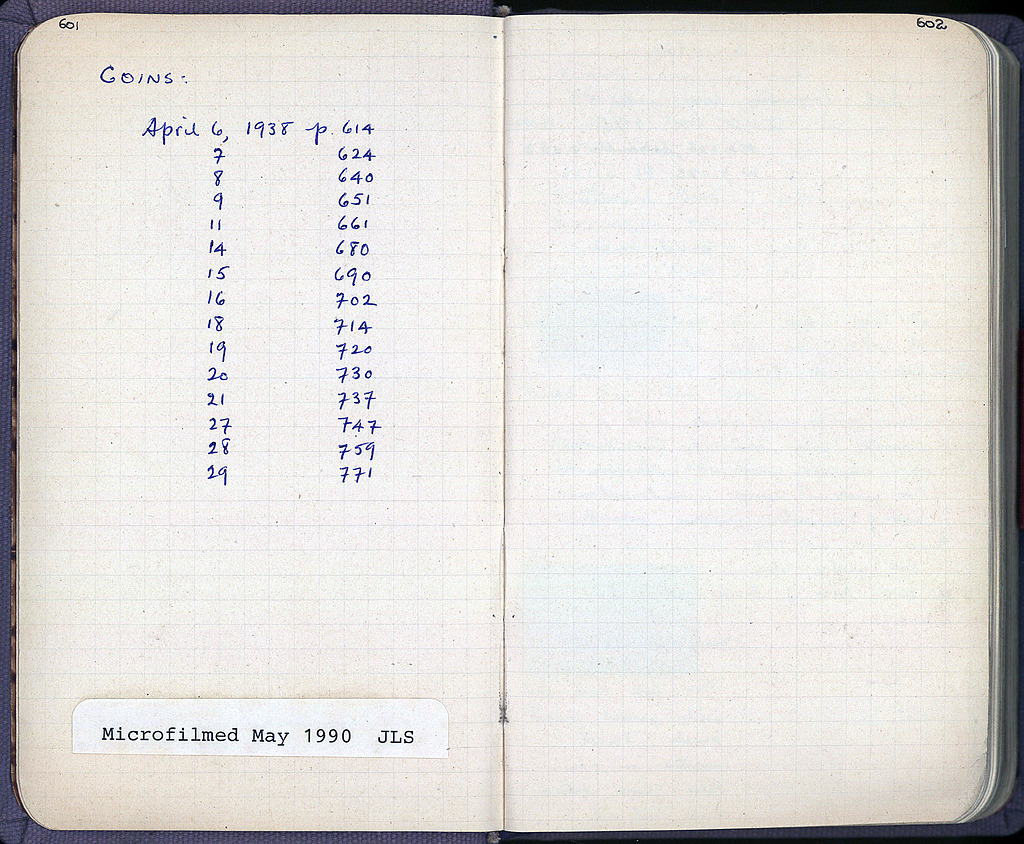 601
COINS:
April 6, 1938 p. 614
7 624
8 640
9 651
11 661
14 680
15 690
16 702
18 714
19 720
20 730
21 737
27 747
28 759
29 771
Microfilmed May 1990 JLS
602